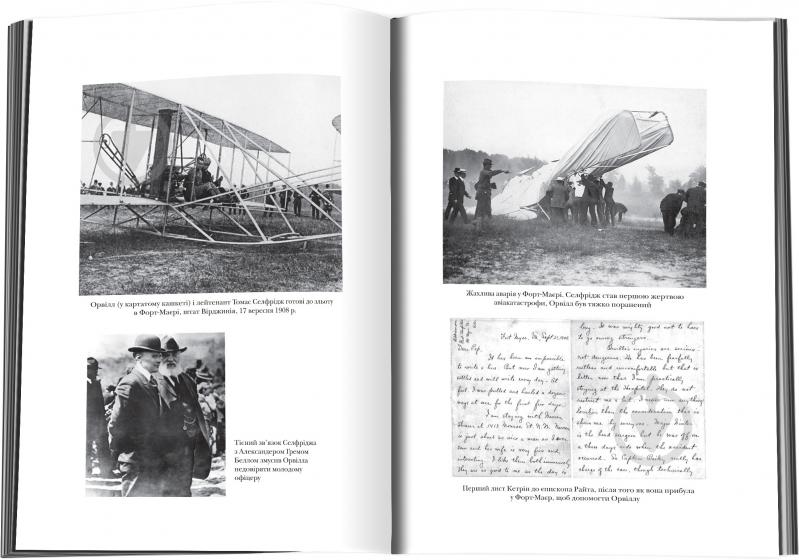 Орвілл (у картатому кашкеті) і лейтенант Томас Селфрідж готові до зльоту
в Форт-Маєрі, штат Вірджинія, 17 вересня 1908 р.
Тісний зв'язок Селфріджа
з Александером Ґремом
Беллом змусив Орвілла
недовіряти молодому
офіцеру
Жахлива аварія у Форт-Маєрі. Селфрідж став першою жертвою
авіакатастрофи, Орвілл був тяжко поранений
Fort Myer, Va, Sept. 1908
Dear Pop,
It has been an impossible
to write a line. But now I am getting
settled and will write every day. At
first I was pulled and hauled a dozen
ways at once for the first few days.
I am staying with
is just about as nice a man as I ever
saw and his wife is very fine and
interesting. I like them both immensely
They are so good to me as the day is
long. It was mighty good not to have
to go among strangers.
Orville's injuries are serious
not dangerous. He has been fearfully
restless and uncomfortable but that is
better now that I am practically
staying at the Hospital. They do not
restrict me a bit. I never saw anything
lovelier than the consideration that is
shown me by everyone. Major
is the head surgeon but he was off on
a three days ride when the accident
occurred. So Captain Bailey really has
charge of the case, though technically
Перший лист Кетрін до єпископа Райта, після того як вона прибула
у Форт-Маєр, щоб допомогти Орвіллу